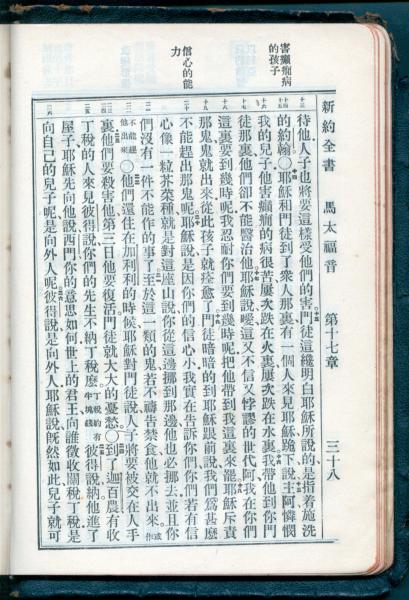 新約全書　馬太福音　第十七章　三十八
害癲癇病
的孩子
信心的能
力
待他人子也將要這樣受他們的害門徒這纔明白耶穌所說的是指着施洗
的約翰○耶穌和門徒到了衆人那裏有一個人來見耶穌跪下說主阿憐憫
我的兒子他害癲癇的病很苦屢次跌在火裏屢次跌在水裏我帶他到你門
徒那裏他們卻不能醫治他耶穌說噯這又不信又悖謬的世代阿我在你們
這裏要到幾時呢我忍耐你們要到幾時呢把他帶到我這裏來罷耶穌斥責
那鬼鬼就出來從此孩子就痊愈了門徒暗暗的到耶穌跟前說我們爲甚麼
不能趕出那鬼呢耶穌說是因你們的信心小我實在告訴你們你們若有信
心像一粒芥菜種就是對這座山說你從這邊挪到那邊他也必挪去並且你
們沒有一件不能作的事了至於這一類的鬼若不禱告禁食他就不出來或作
不能趕他出來○他們還住在加利利的時候耶穌對門徒說人子將要被交在人手
裏他們要殺害他第三日他要復活門徒就大大的憂愁○到了迦百農有收
丁稅的人來見彼得說你們的先生不納丁稅麼丁稅約有半塊錢彼得說納他進了
屋子耶穌先向他說西門你的意思如何世上的君王向誰徵收關稅丁稅是
向自己的兒子呢是向外人呢彼得說是向外人耶穌說旣然如此兒子就可